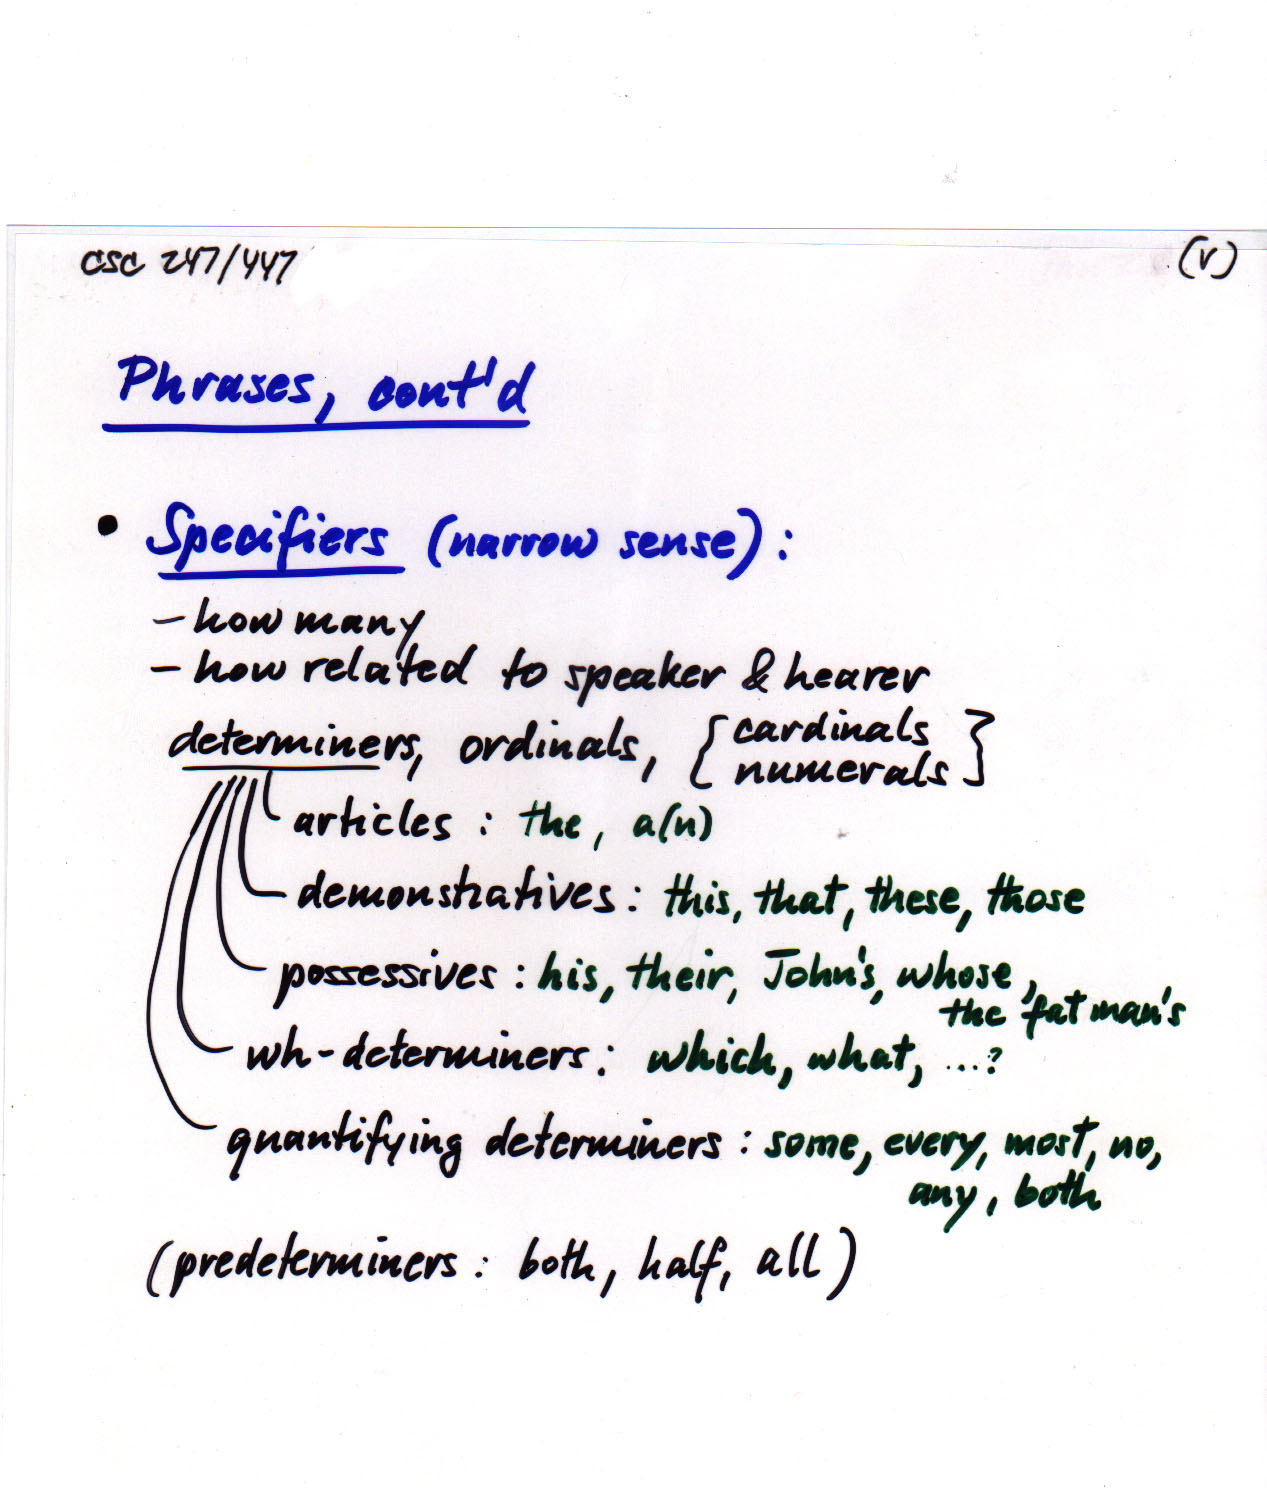 CSC 247/447 (v)
Phrases, cont'd
• Specifiers (narrow sense):
- how many
- how related to speaker & hearer
determiners, ordinals, { cardinals
numerals }
articles: the, a(n)
demonstratives: this, that, these, those
possessives: his, their, John's, whose,
the fat man's
wh-determiners: which, what, ...?
quantifying determiners: some, every, most, no,
any, both
(predeterminers: both, half, all)